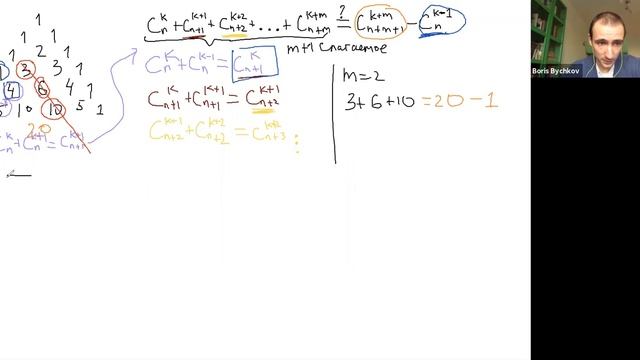 1
C_n^k + C_{n+1}^{k+1} + C_{n+2}^{k+2} + ... + C_{n+m}^{k+m} ≟ C_{n+m+1}^{k+m} - C_n^{k-1}
1 1
m+1 слагаемое
1 2 1
C_n^k + C_n^{k-1} = C_{n+1}^k
3 3 1
m=2
4 6 4 1
C_{n+1}^k + C_{n+1}^{k+1} = C_{n+2}^{k+1}
3+6+10=20-1
10 10 5 1
20
C_{n+2}^{k+1} + C_{n+2}^{k+2} = C_{n+3}^{k+2}
C_n^k + C_n^{k+1} = C_{n+1}^{k+1}
Boris Bychkov